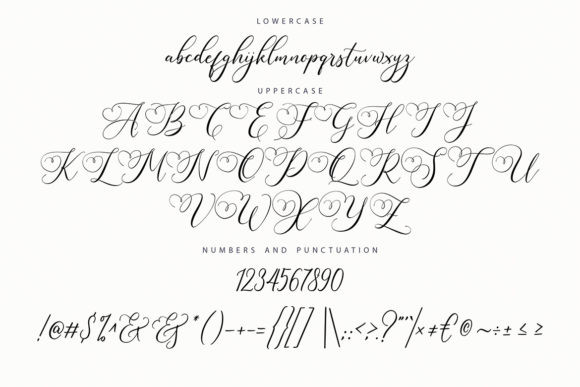 LOWERCASE
abcdefghijklmnopqrstuvwxyz
UPPERCASE
ABCEFGHIJ
KLMNOPQRSTU
VWXYZ
NUMBERS AND PUNCTUATION
1234567890
!@#$%^&&*()-+-={}[] |\;:<,>.?"'`/×≠€©~÷±≤≥